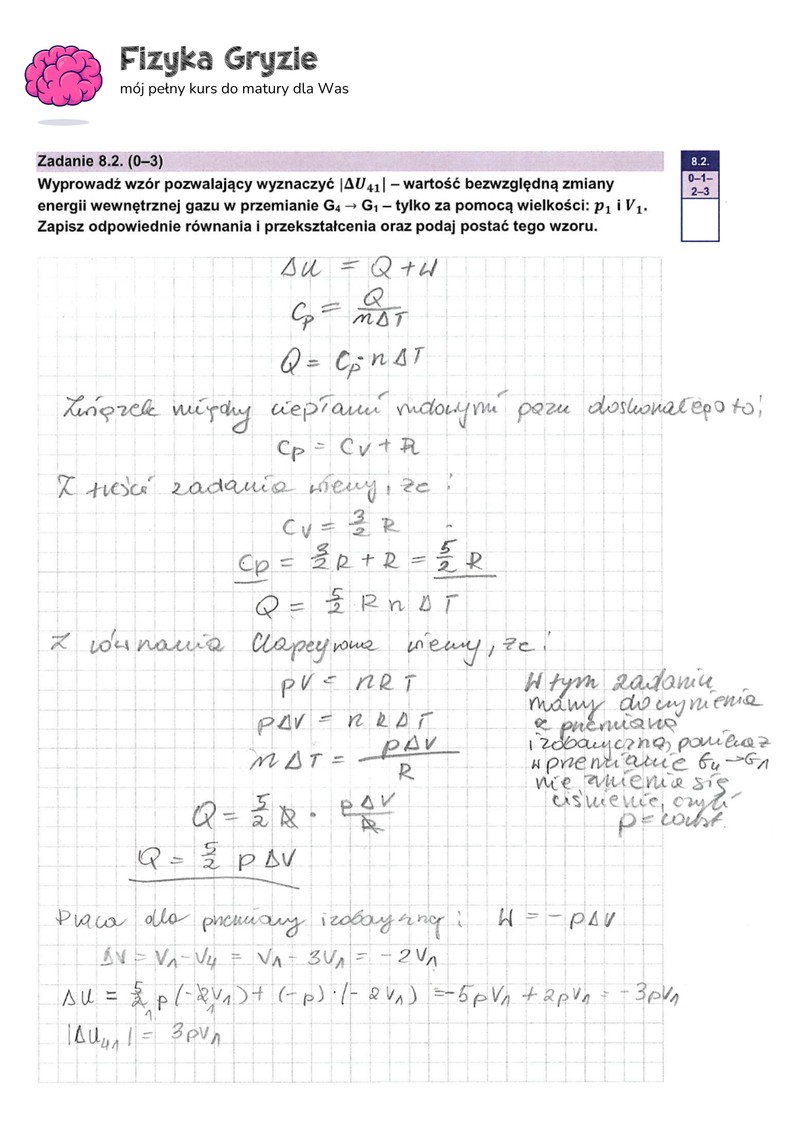 Fizyka Gryzie
mój pełny kurs do matury dla Was
Zadanie 8.2. (0–3)
8.2.
0–1–
2–3
Wyprowadź wzór pozwalający wyznaczyć |ΔU₄₁| – wartość bezwzględną zmiany
energii wewnętrznej gazu w przemianie G₄ → G₁ – tylko za pomocą wielkości: p₁ i V₁.
Zapisz odpowiednie równania i przekształcenia oraz podaj postać tego wzoru.
ΔU = Q + W
Cp = Q / nΔT
Q = Cp · n ΔT
Związek między ciepłami molowymi gazu doskonałego to:
Cp = Cv + R
Z treści zadania wiemy, że:
Cv = 3/2 R
Cp = 3/2 R + R = 5/2 R
Q = 5/2 R n ΔT
Z równania Clapeyrona wiemy, że:
pV = nRT
pΔV = nRΔT
nΔT = pΔV / R
Q = 5/2 R · pΔV / R
Q = 5/2 p ΔV
W tym zadaniu
mamy do czynienia
z przemianą
izobaryczną, ponieważ
w przemianie G₄→G₁
nie zmienia się
ciśnienie, czyli
p = const.
Praca dla przemiany izobarycznej: W = – pΔV
ΔV = V₁ – V₄ = V₁ – 3V₁ = – 2V₁
ΔU = 5/2 p (–2V₁) + (–p) · (– 2V₁) = –5pV₁ + 2pV₁ = –3pV₁
|ΔU₄₁| = 3pV₁